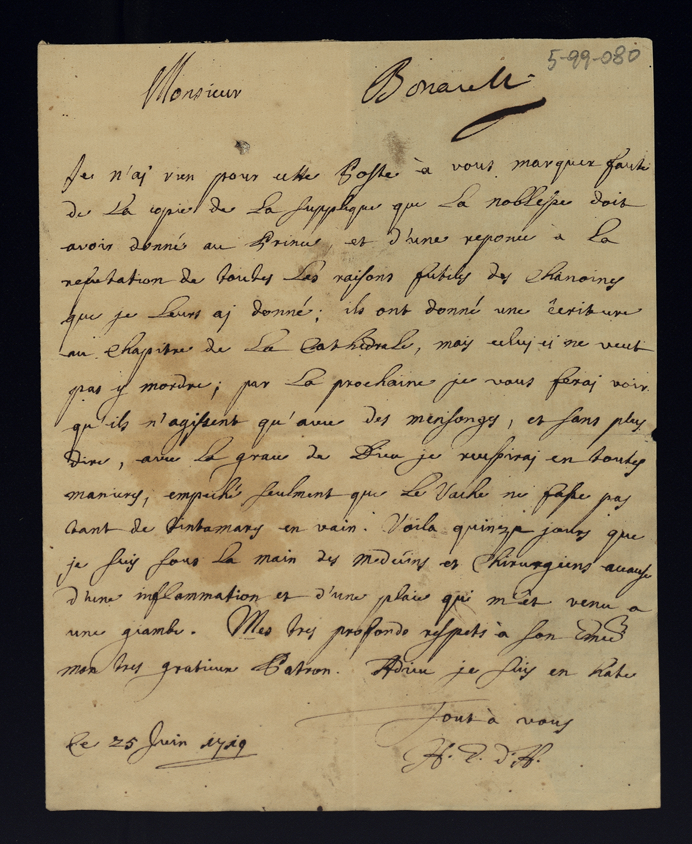 5-99-080
Monsieur Bonarelli
Je n'aj rien pour cette Poste à vous marquer faute
de La copie de La supplique que La noblesse doit
avoir donné au Prince et d'une reponce à La
refutation de toutes Les raisons futiles des Chanoines
que je Leurs aj donné; ils ont donné une écriture
au Chapitre de La Cathédrale, mais celuj ci ne veut
pas y mordre; par La prochaine je vous feraj voir
qu'ils n'agissent qu'avec des mensonges, et sans plus
dire, avec La grace de Dieu je reussiraj en toutes
manieres, empeché seulment que Le Vache ne fasse pas
tant de tintamars en vain. Voila quinze jours que
je suis sous La main des medecins et Chirurgiens acause
d'une inflammation et d'une plaie qui m'êt venu a
une giambe. Mes tres profonds respets à son Emce
mon tres gratieux Patron. Adieu je suis en hate
Tout à vous
Le 25 Juin 1719 H. T. d'H.